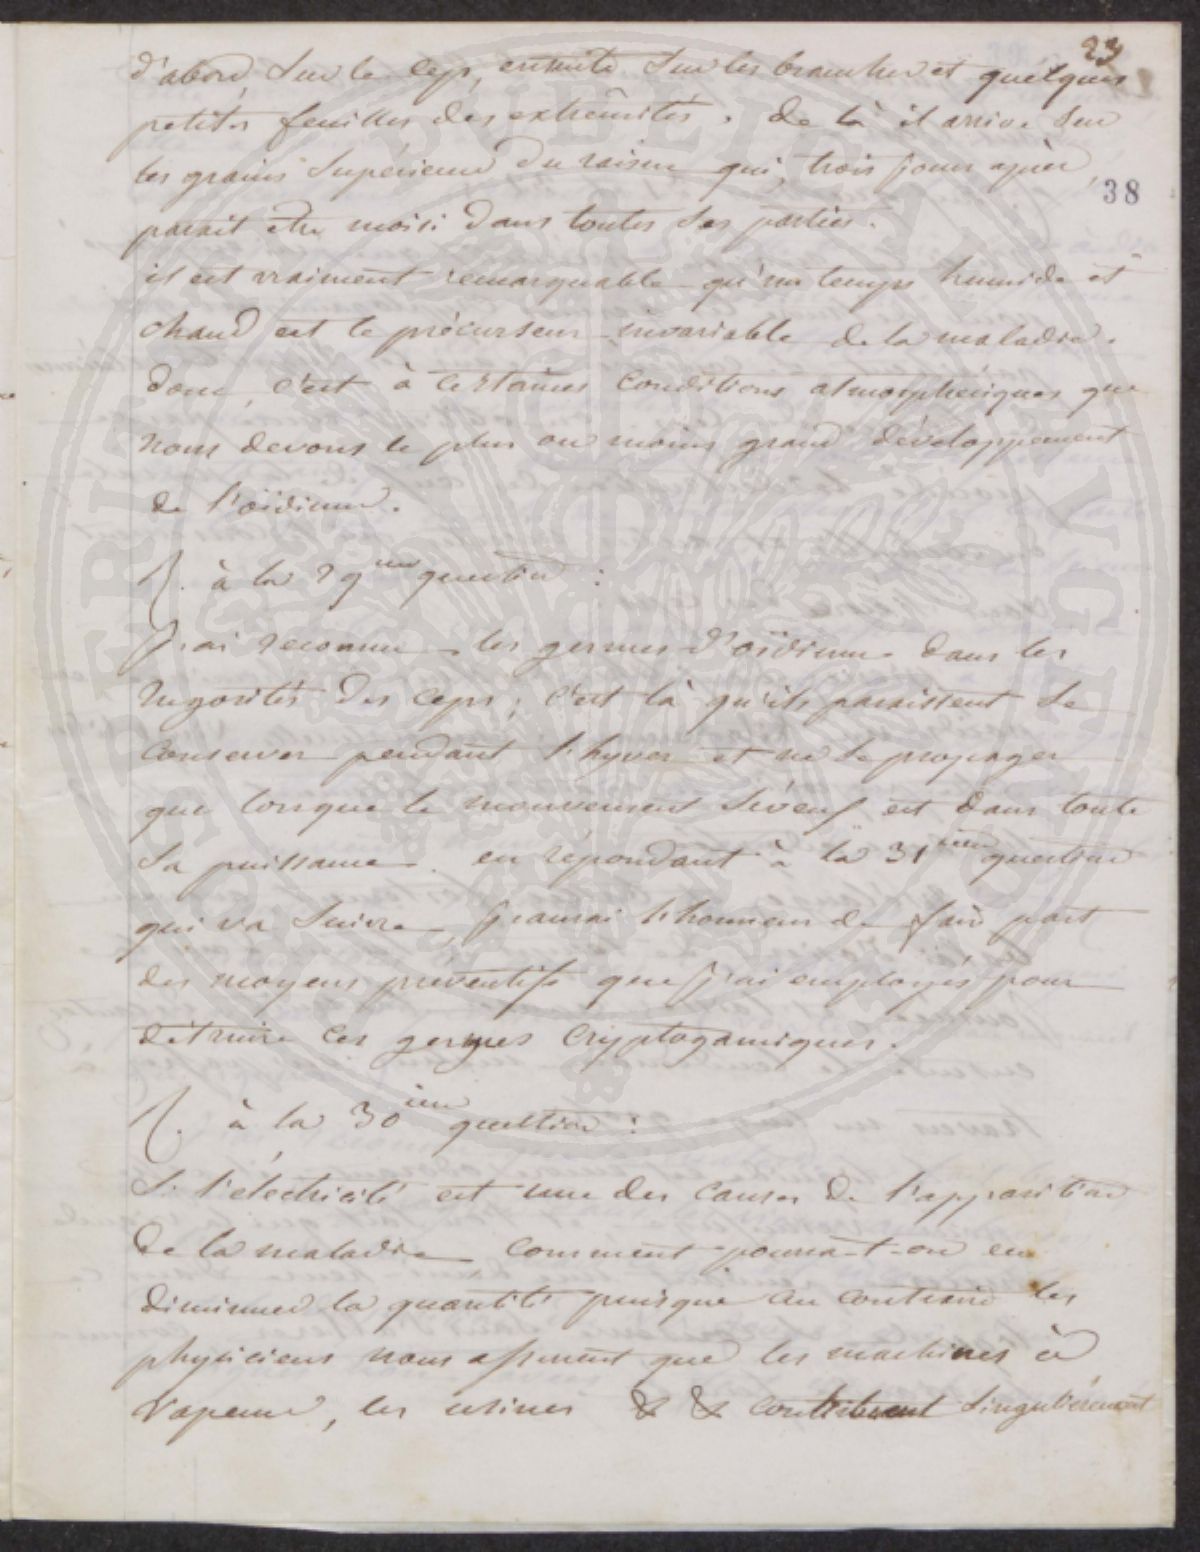 23
d'abord, sur le cep, ensuite sur les branches et quelques
petites feuilles des extrêmités. de là il arrive sur
les grains supérieurs du raisin qui, trois jours après,
38
parait être moisi dans toutes ses parties.
il est vraiment remarquable qu'un temps humide et
chaud est le précurseur invariable de la maladie.
donc, c'est à certaines conditions atmosphériques que
nous devons le plus ou moins grand développement
de l'oïdium.
R. à la 29eme question :
J'ai reconnu les germes d'oïdium dans les
rugosités des ceps ; c'est là qu'ils paraissent se
conserver pendant l'hyver et ne se propager
que lorsque le mouvement séveux est dans toute
sa puissance. en répondant à la 31ieme question
qui va suivre, j'aurai l'honneur de faire part
des moyens préventifs que j'ai employés pour
détruire ces germes cryptogamiques.
R. à la 30ieme question :
Si l'électricité est une des causes de l'apparition
de la maladie comment pourra-t-on en
diminuer la quantité puisque au contraire les
physiciens nous assurent que les machines à
vapeur, les usines & & contribuent singulièrement
SUPERIET PUBLICI